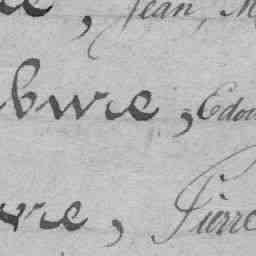 Jean, M
bvre, Edou
vre, Pierre